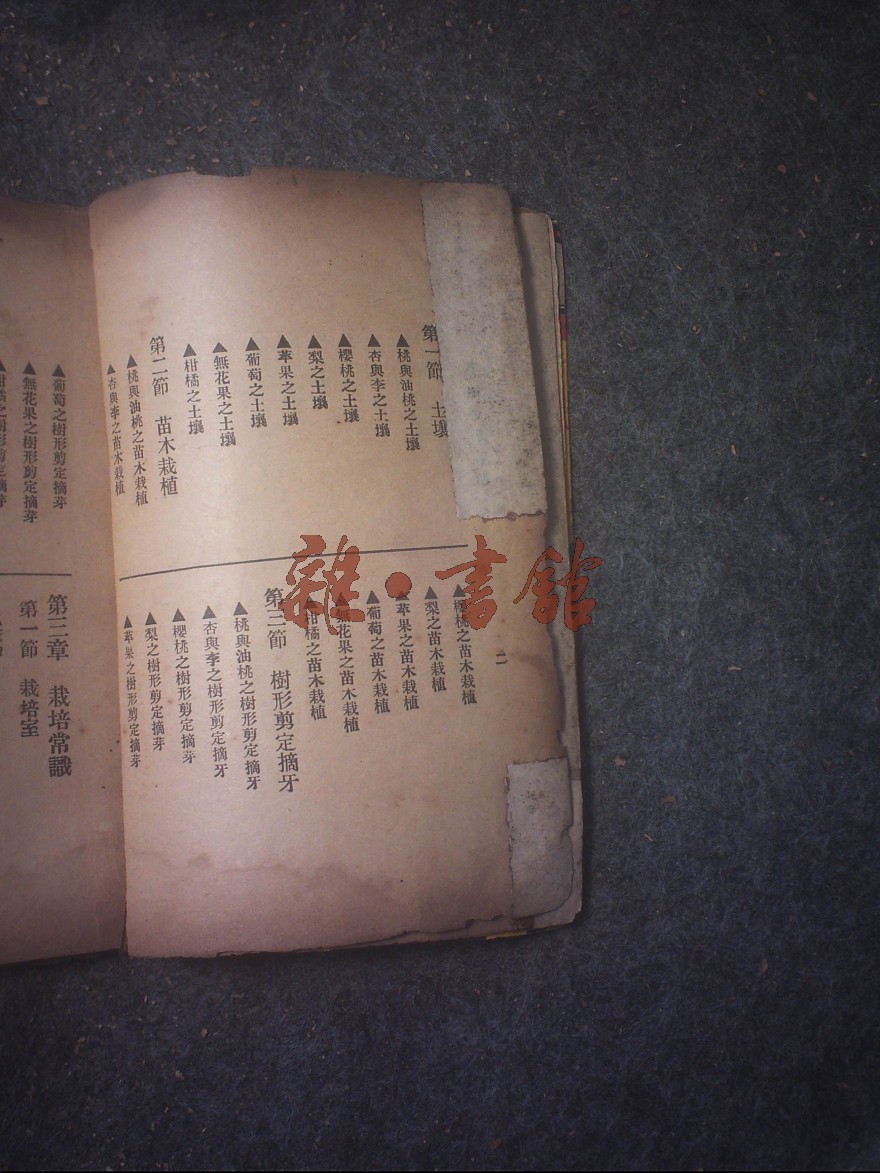 第一節　土壤
▲桃與油桃之土壤
▲杏與李之土壤
▲櫻桃之土壤
▲梨之土壤
▲苹果之土壤
▲葡萄之土壤
▲無花果之土壤
▲柑橘之土壤
第二節　苗木栽植
▲桃與油桃之苗木栽植
▲杏與李之苗木栽植
▲櫻桃之苗木栽植
▲梨之苗木栽植
▲苹果之苗木栽植
▲葡萄之苗木栽植
▲無花果之苗木栽植
▲柑橘之苗木栽植
第三節　樹形剪定摘牙
▲桃與油桃之樹形剪定摘牙
▲杏與李之樹形剪定摘牙
▲櫻桃之樹形剪定摘芽
▲梨之樹形剪定摘芽
▲苹果之樹形剪定摘芽
二
▲葡萄之樹形剪定摘芽
▲無花果之樹形剪定摘芽
▲柑橘之樹形剪定摘芽
第三章　栽培常識
第一節　栽培室
雜·書館